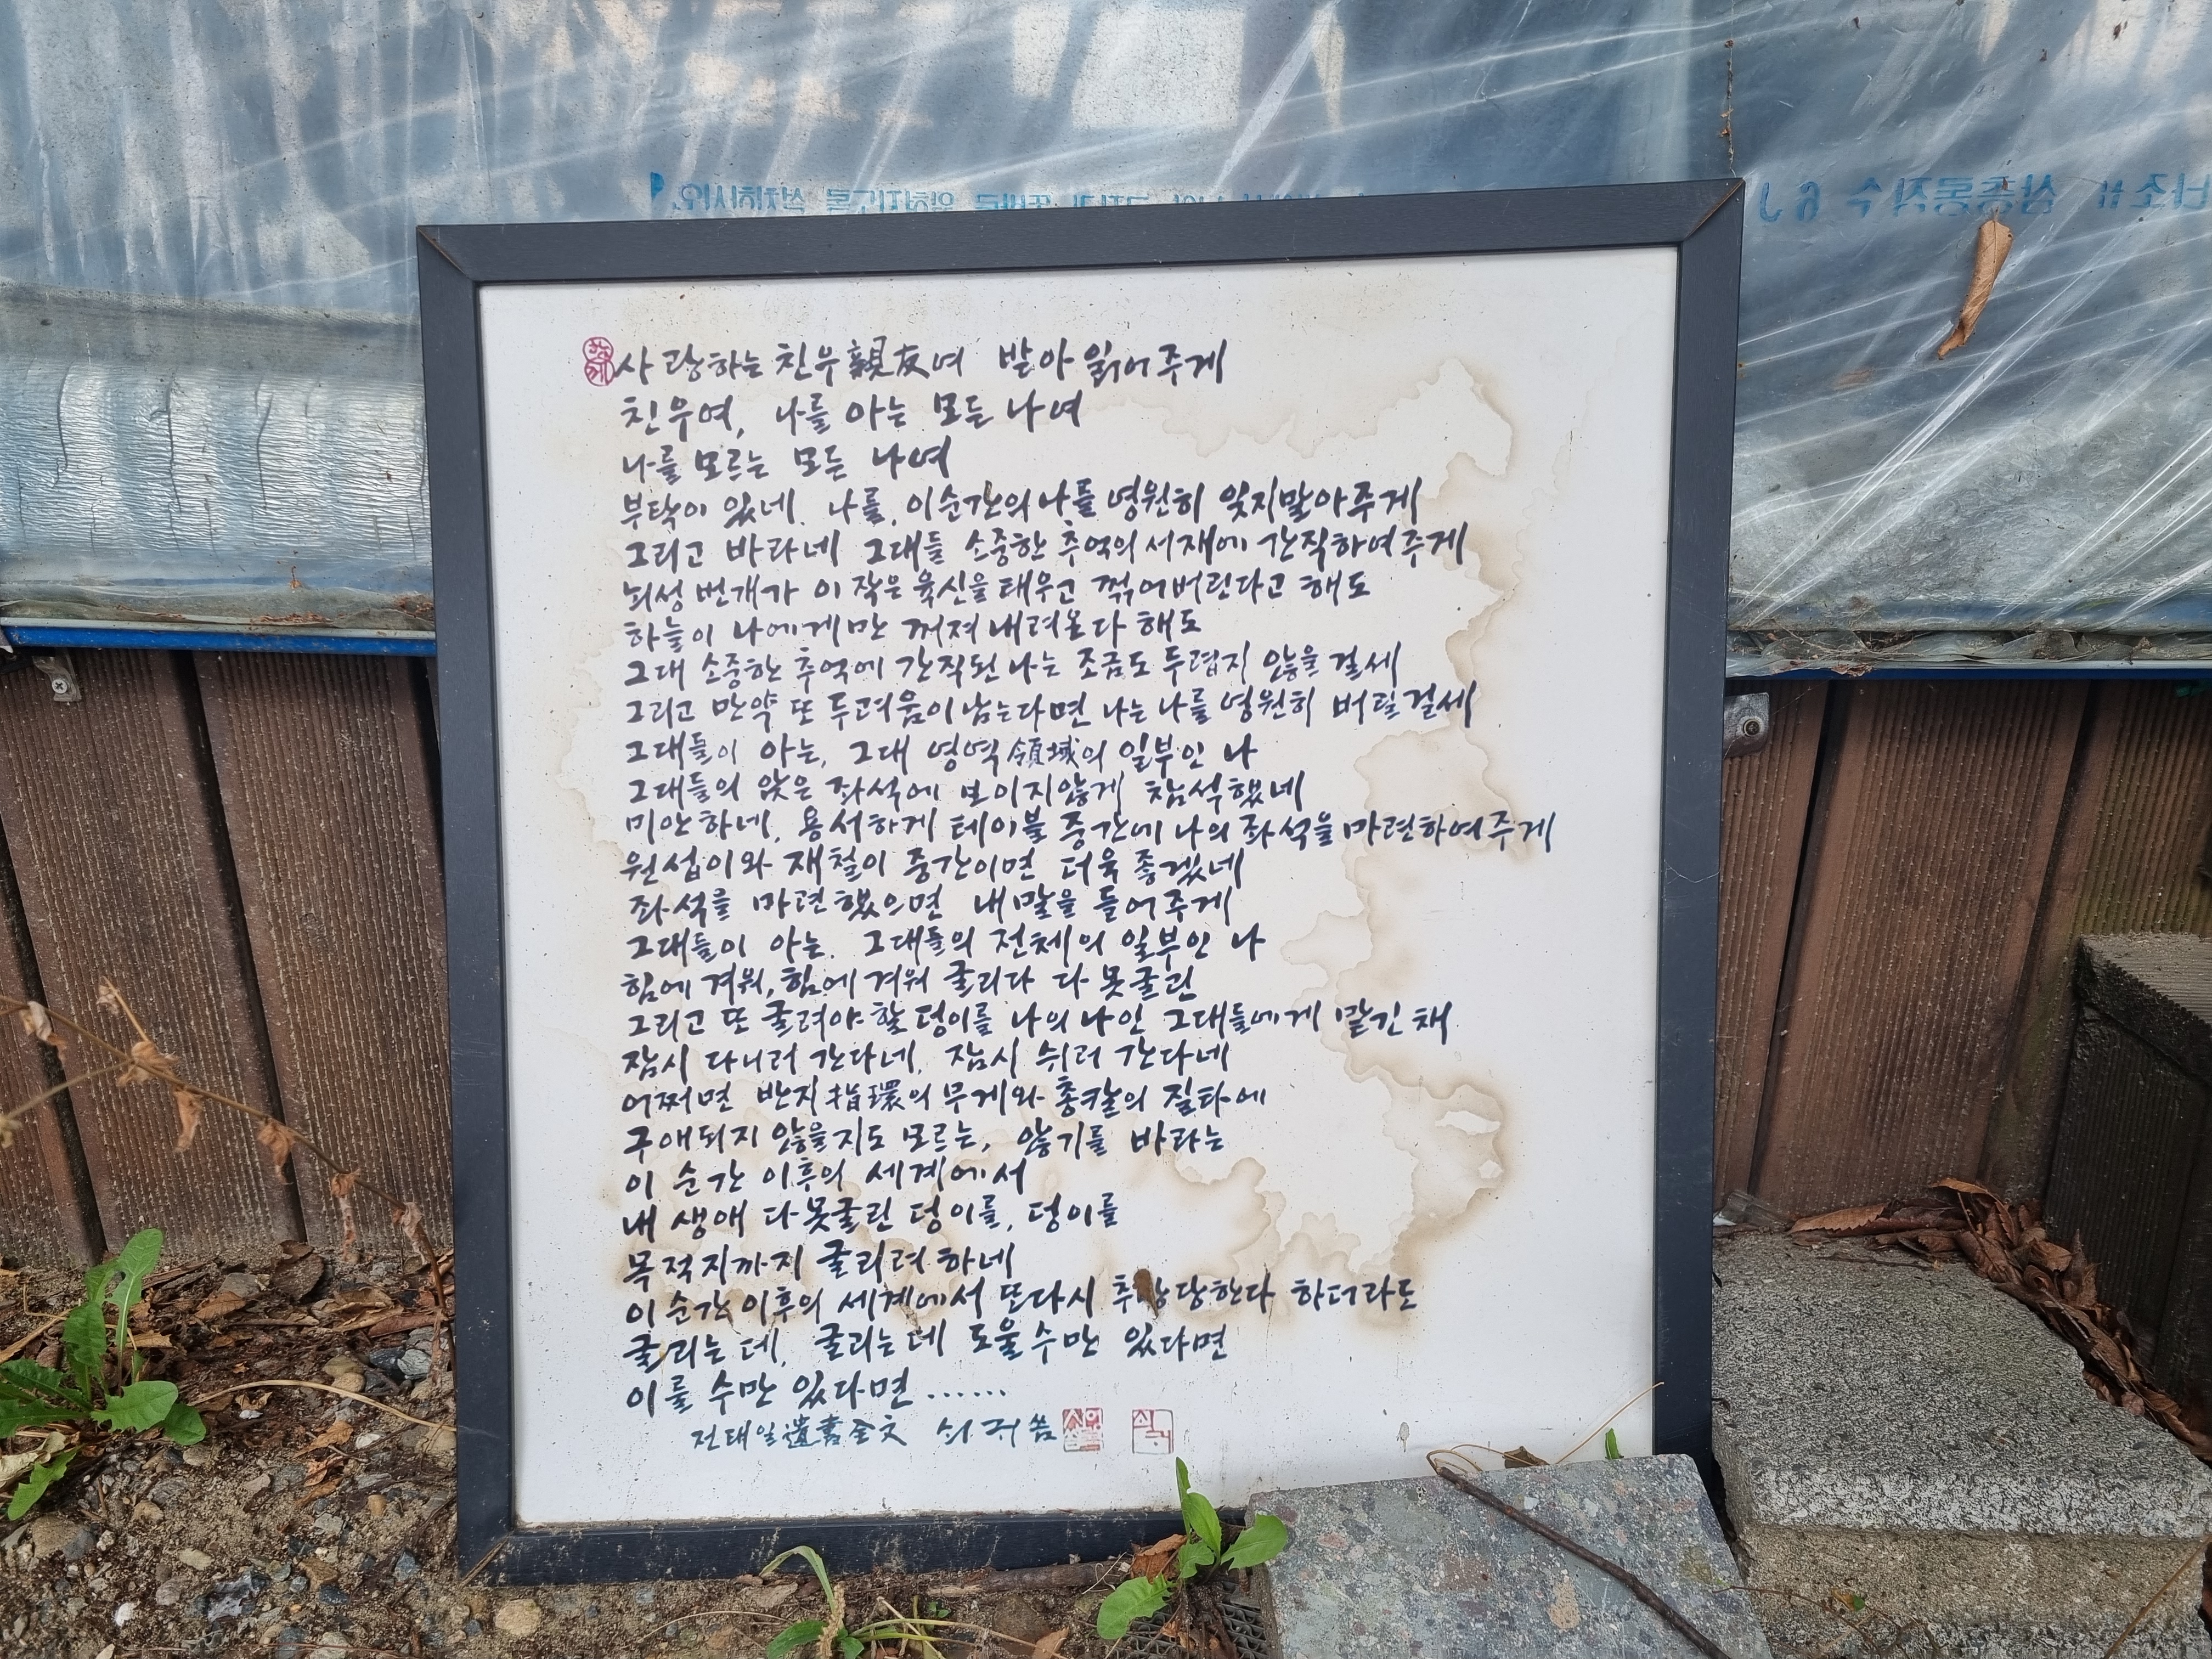 사랑하는 친우親友여 받아 읽어주게
친우여, 나를 아는 모든 나여
나를 모르는 모든 나여
부탁이 있네. 나를, 이 순간의 나를 영원히 잊지말아주게
그리고 바라네 그대들 소중한 추억의 서재에 간직하여주게
뇌성 번개가 이 작은 육신을 태우고 꺾어버린다고 해도
하늘이 나에게만 꺼져 내려온다 해도
그대 소중한 추억에 간직된 나는 조금도 두렵지 않을 걸세
그리고 만약 또 두려움이 남는다면 나는 나를 영원히 버릴걸세
그대들이 아는, 그대 영역領域의 일부인 나
그대들의 앉은 좌석에 보이지않게 참석했네
미안하네, 용서하게 테이블 중간에 나의 좌석을 마련하여주게
원섭이와 재철이 중간이면 더욱 좋겠네
좌석을 마련했으면 내 말을 들어주게
그대들이 아는. 그대들의 전체의 일부인 나
힘에 겨워, 힘에 겨워 굴리다 다 못굴린
그리고 또 굴려야 할 덩이를 나의 나인 그대들에게 맡긴 채
잠시 다니러 간다네, 잠시 쉬러 간다네
어쩌면 반지指環의 무게와 총칼의 질타에
구애되지 않을지도 모르는, 않기를 바라는
이 순간 이후의 세계에서
내 생애 다 못굴린 덩이를, 덩이를
목적지까지 굴리려 하네
이 순간 이후의 세계에서 또다시 추방당한다 하더라도
굴리는 데, 굴리는 데 도울 수만 있다면
이룰 수만 있다면 ......
전태일遺書全文 쇠귀 씀